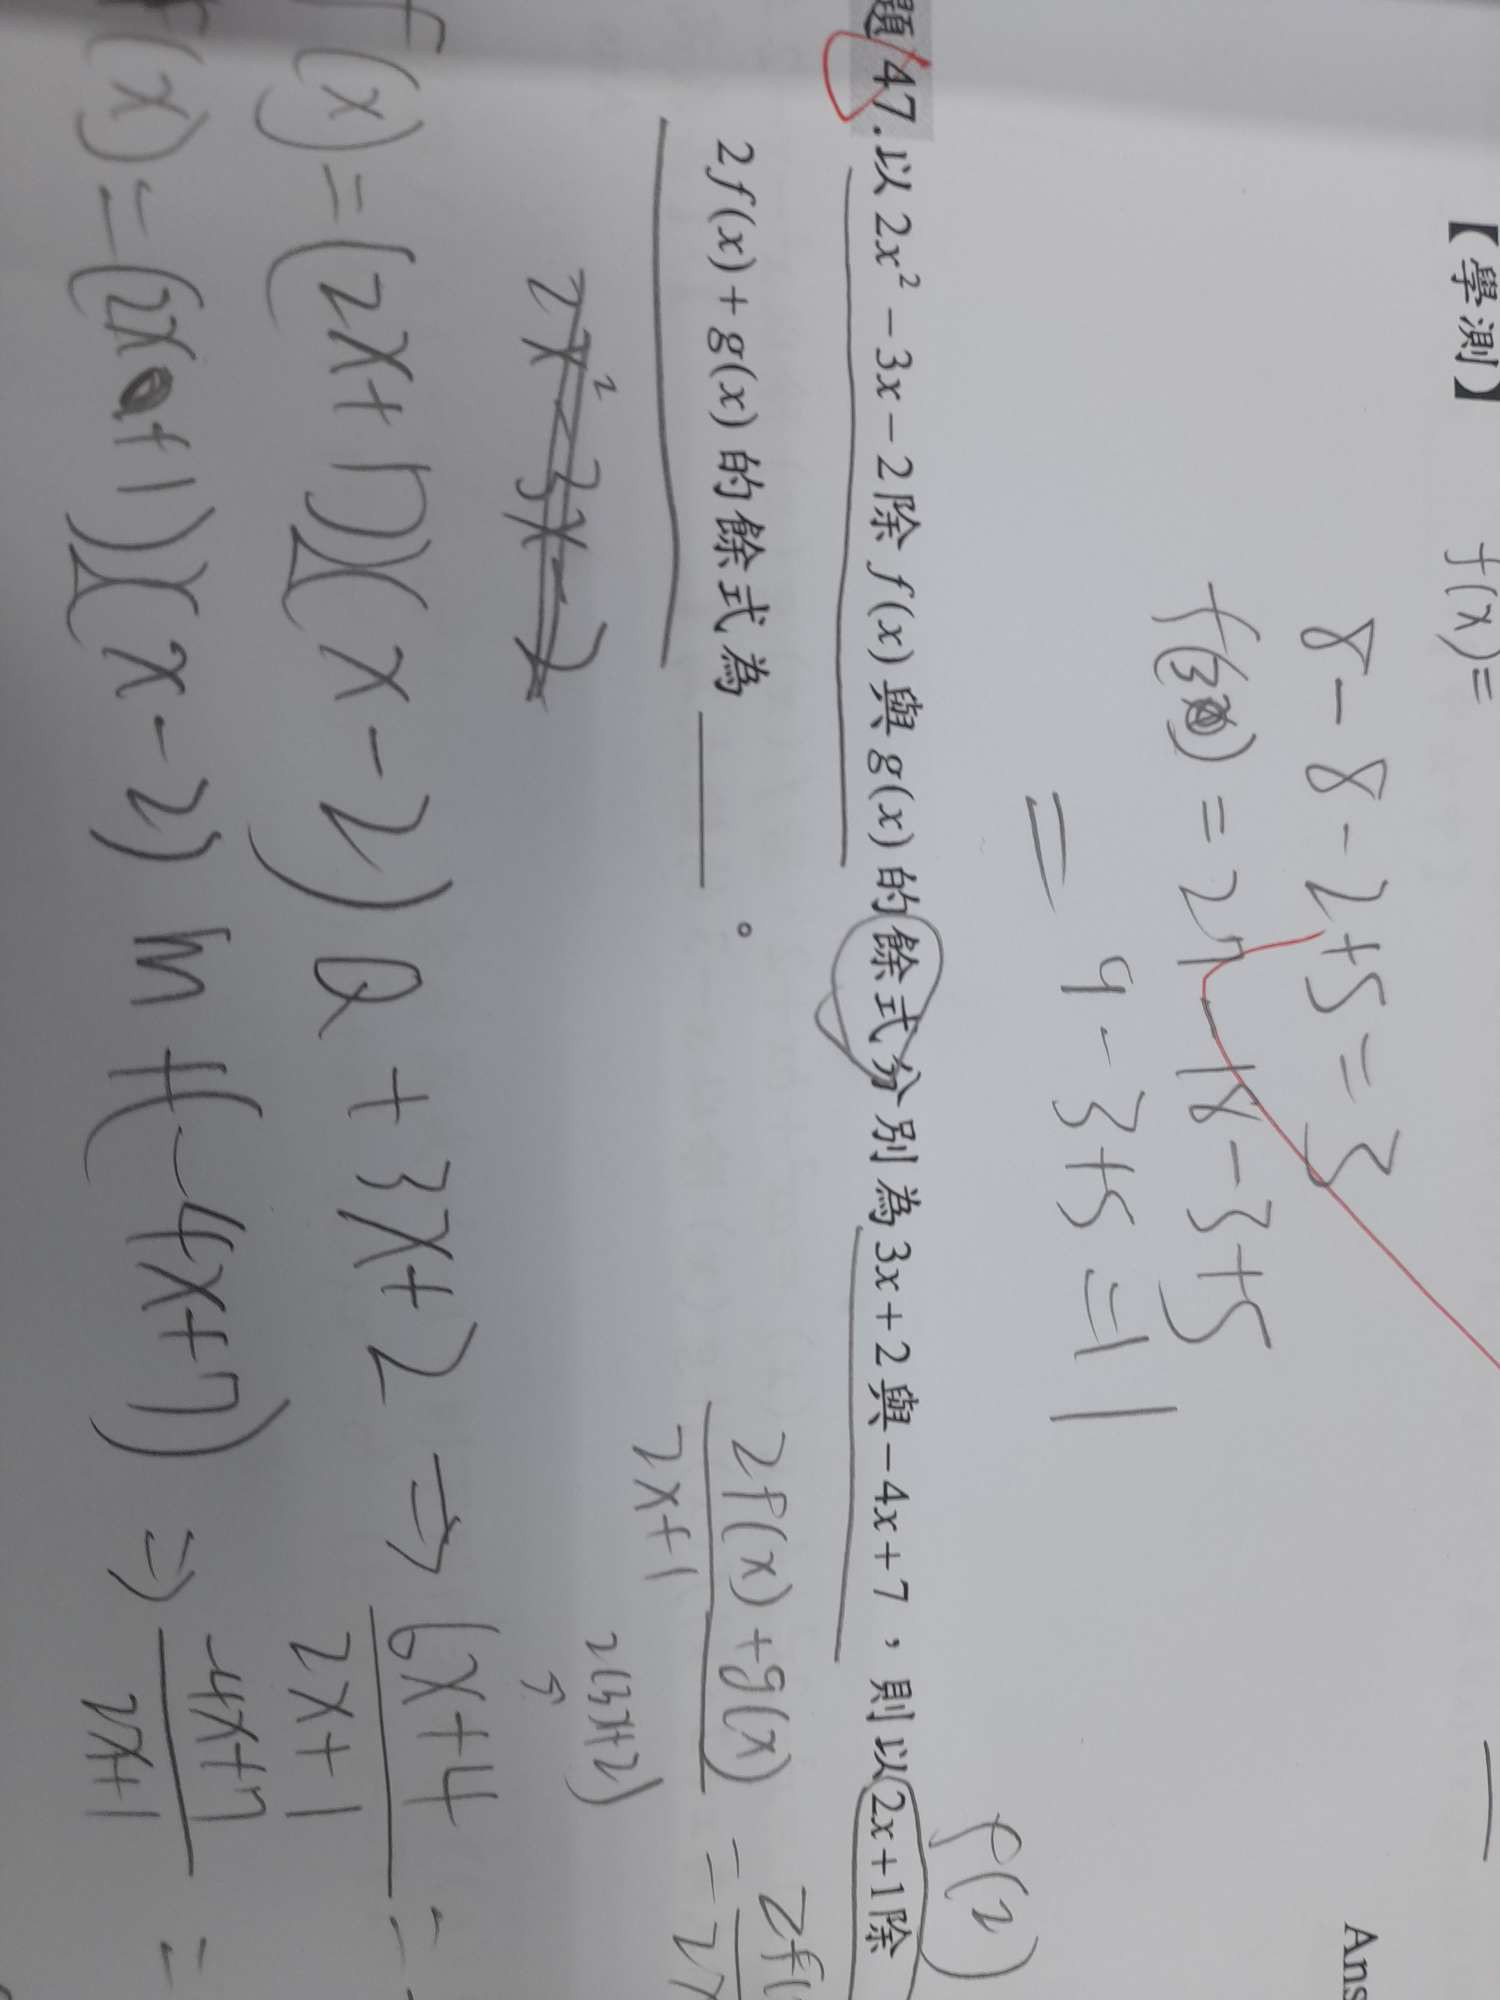 【學測】
f(x)=
8-8-2+5=3
f(3)=27-18-3+5
= 9-3+5=11
Ans
f(2)
題 47. 以 2x²-3x-2 除 f(x) 與 g(x) 的餘式分別為 3x+2 與 -4x+7，則以 2x+1 除
2f(x)+g(x) 的餘式為＿＿＿。
2f(x)+g(x)
2x+1
=
2x²-3x-2
2(3x+2)
f(x)=(2x+1)(x-2)Q+3x+2 ⇒ 6x+4
2x+1
=
f(x)=(2x+1)(x-2)m+(-4x+7) ⇒ -4x+7
2x+1
=